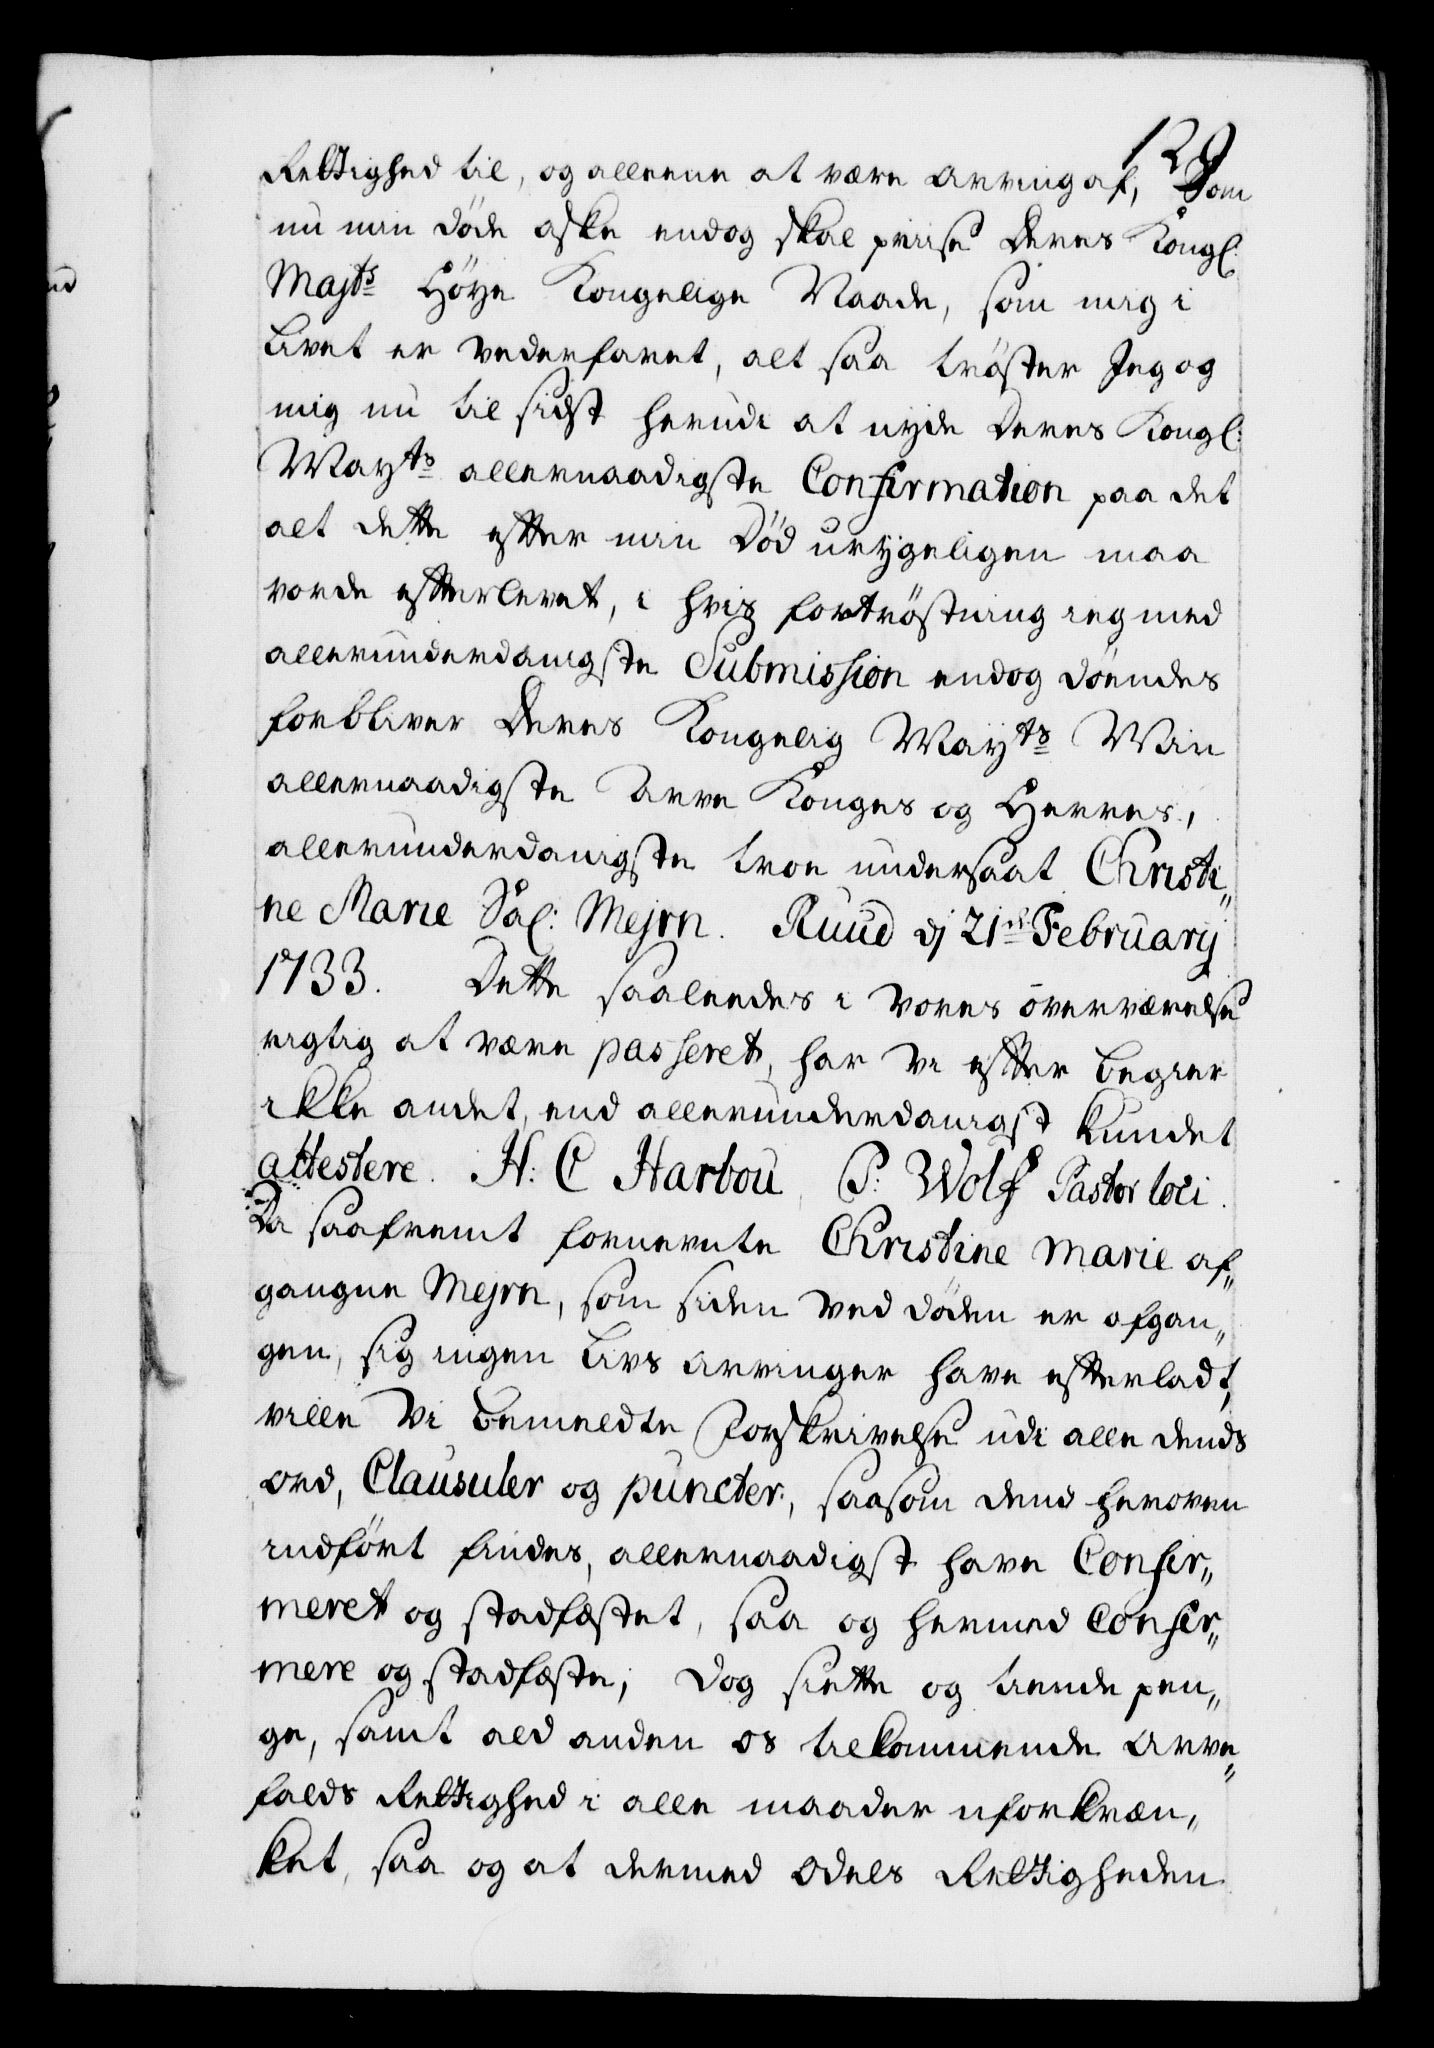 129
Rettighed til, og alleene at være arving af, Som
nu min døde aske endog skal priise Deres Kongl:
Majts Høye Kongelige Naade, som mig i
Livet er vederfaret, alt saa trøster Jeg og
mig nu til sidst herudi at nyde Deres Kongl:
Mayts allernaadigste Confirmation paa det
alt dette efter min Død urygeligen maa
vorde efterlevet, i hvis fortrøstning ieg med
allerunderdanigste Submission endog døendes
forbliver Deres Kongelig Mayts Min
allernaadigste Arve Konges og Herres,
allerunderdanigste troe undersaat Christi„
ne Marie Sal: Mejrn. Ruud dj 21de February
1733. Dette saaleedes i vores overværelse
rigtig at være passeret, har vi efter begier
ikke andet, end allerunderdanigst kundet
attestere. H: C Harbou, P: Wolf Pastor loci.
Da saafremt fornevnte Christine Marie af„
gangne Mejrn, som siden ved døden er afgan„
gen, sig ingen Livs arvinger have efterladt,
ville Vi bemeldte Forskrivelse udi alle dends
ord, Clausuler og puncter, saasom dend heroven
indført findes, allernaadigst have Confir„
meret og stadfæstet, saa og hermed Confir„
mere og stadfæste; Dog siette og tiende pen„
ge, samt ald anden os tilkommende Arve„
falds Rettighed i alle maader uforkræn„
ket, saa og at dermed Odels Rettigheden